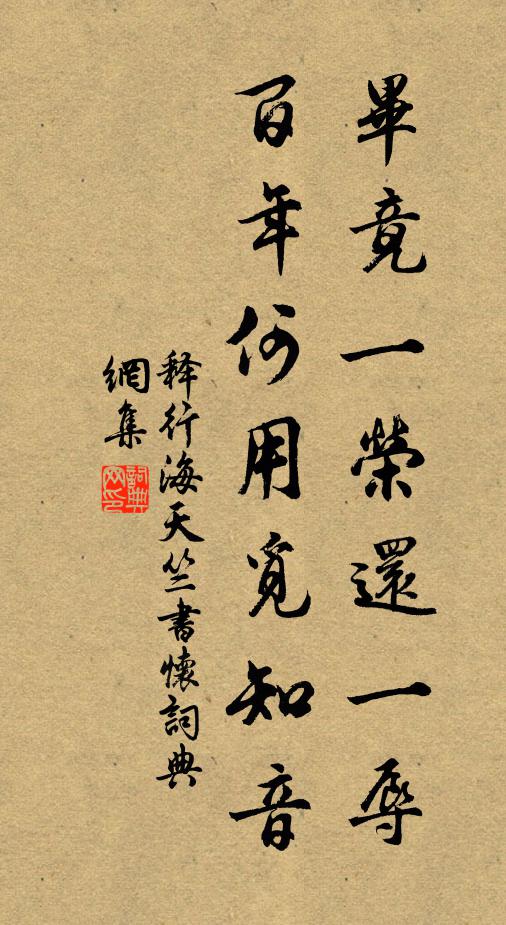 畢竟一榮還一辱
百年何用覓知音
释行海天竺書懷詞典
網集
詞典網印